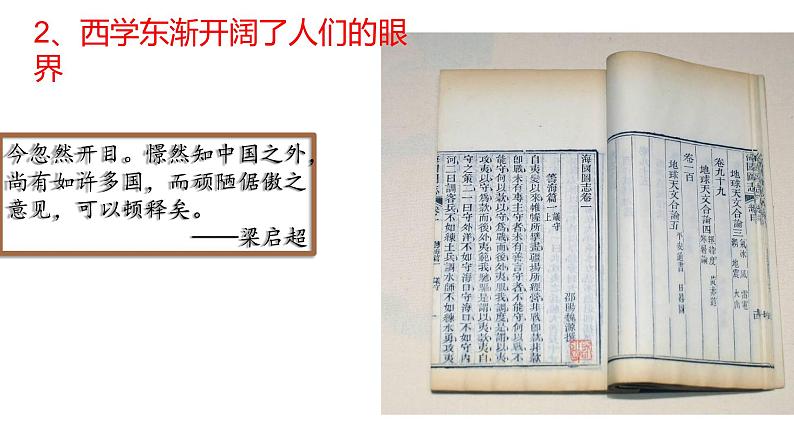 2、西学东渐开阔了人们的眼
界
今忽然开目。憬然知中国之外，
尚有如许多国，而顽陋倨傲之
意见，可以顿释矣。
——梁启超
地球天文合論三
卷九十九
地球天文合論四
卷一百
地球天文合論五 平安通書 日晷圖
海國圖志卷一
邵陽魏源撰
籌海篇一 議守上
自夷變以來帷幄所擘畫疆場所經營非戰即款非款
即戰未有專主守者未有善言守者不能守何以戰不
能守何以款以守為戰而後外夷服我調度是謂以夷
攻夷以守為款而後外夷範我馳驅是謂以夷款夷自
守之策二一曰守外洋不如守海口守海口不如守內
河二曰調客兵不如練土兵調水師不如練水勇攻夷